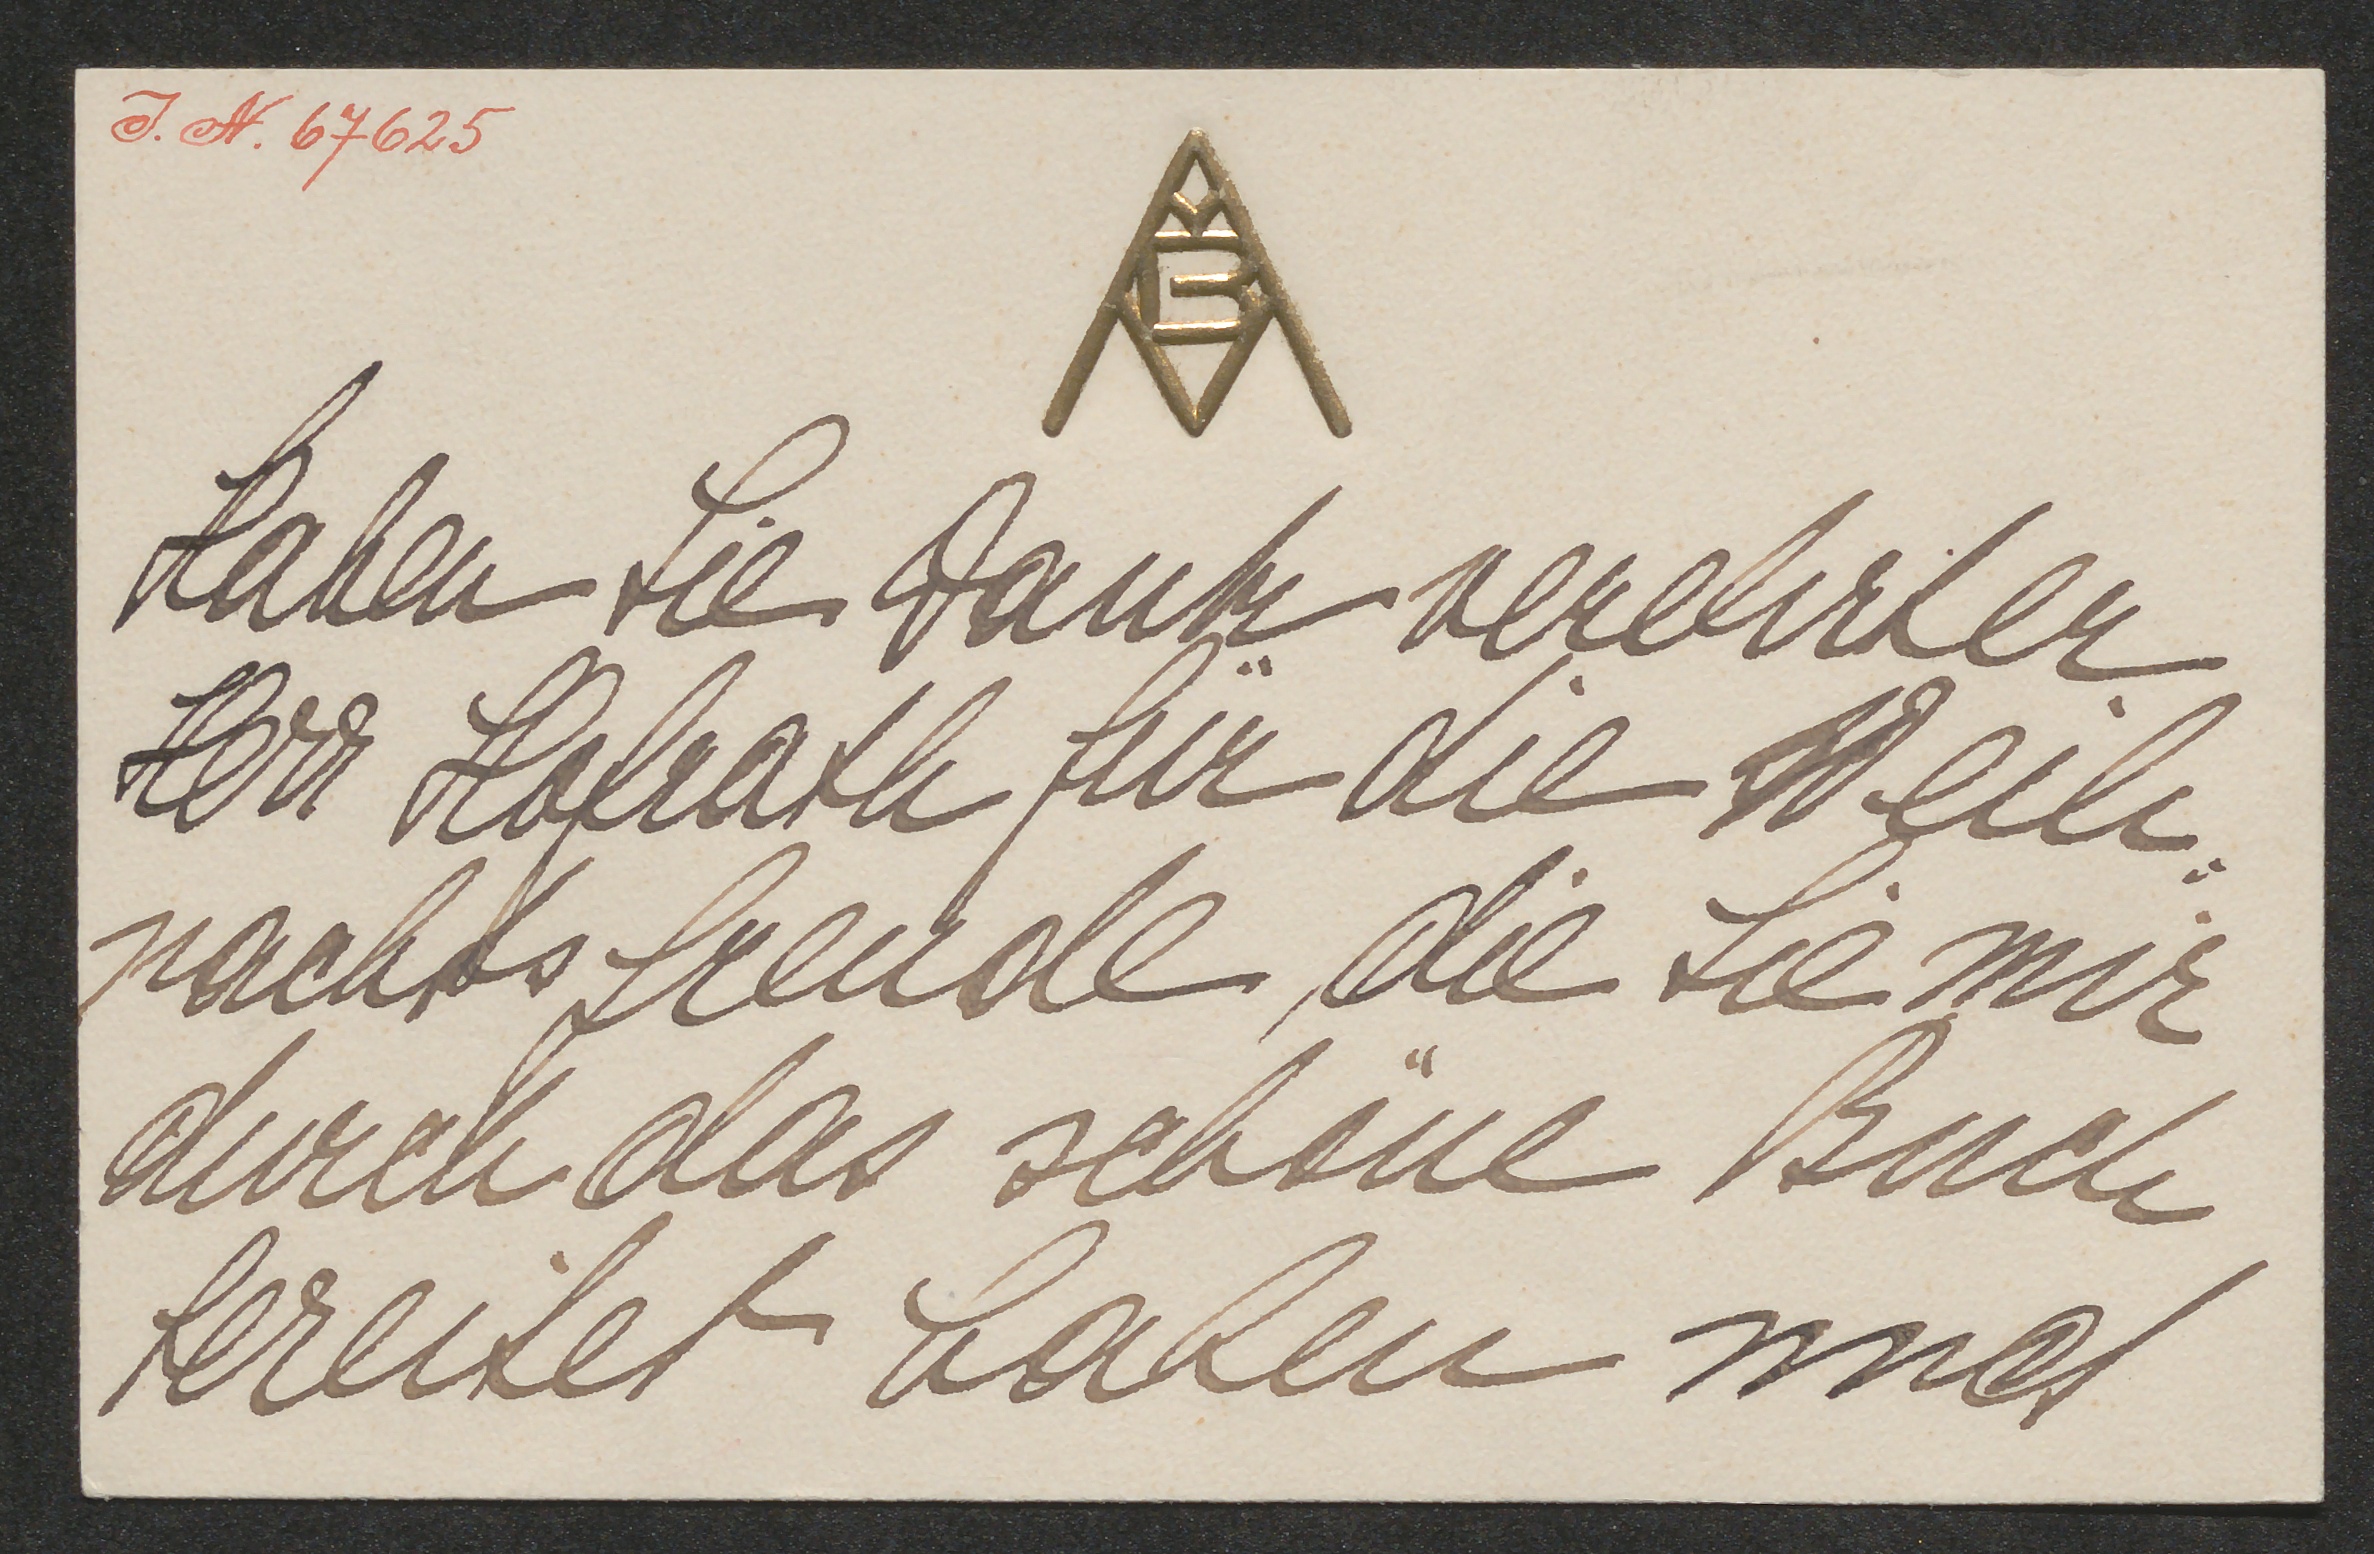 J. N. 67625
Haben Sie Dank verehrter
Herr Hofrath für die Weih-
nachtsfreude, die Sie mir
durch das schöne Buch
bereitet haben und